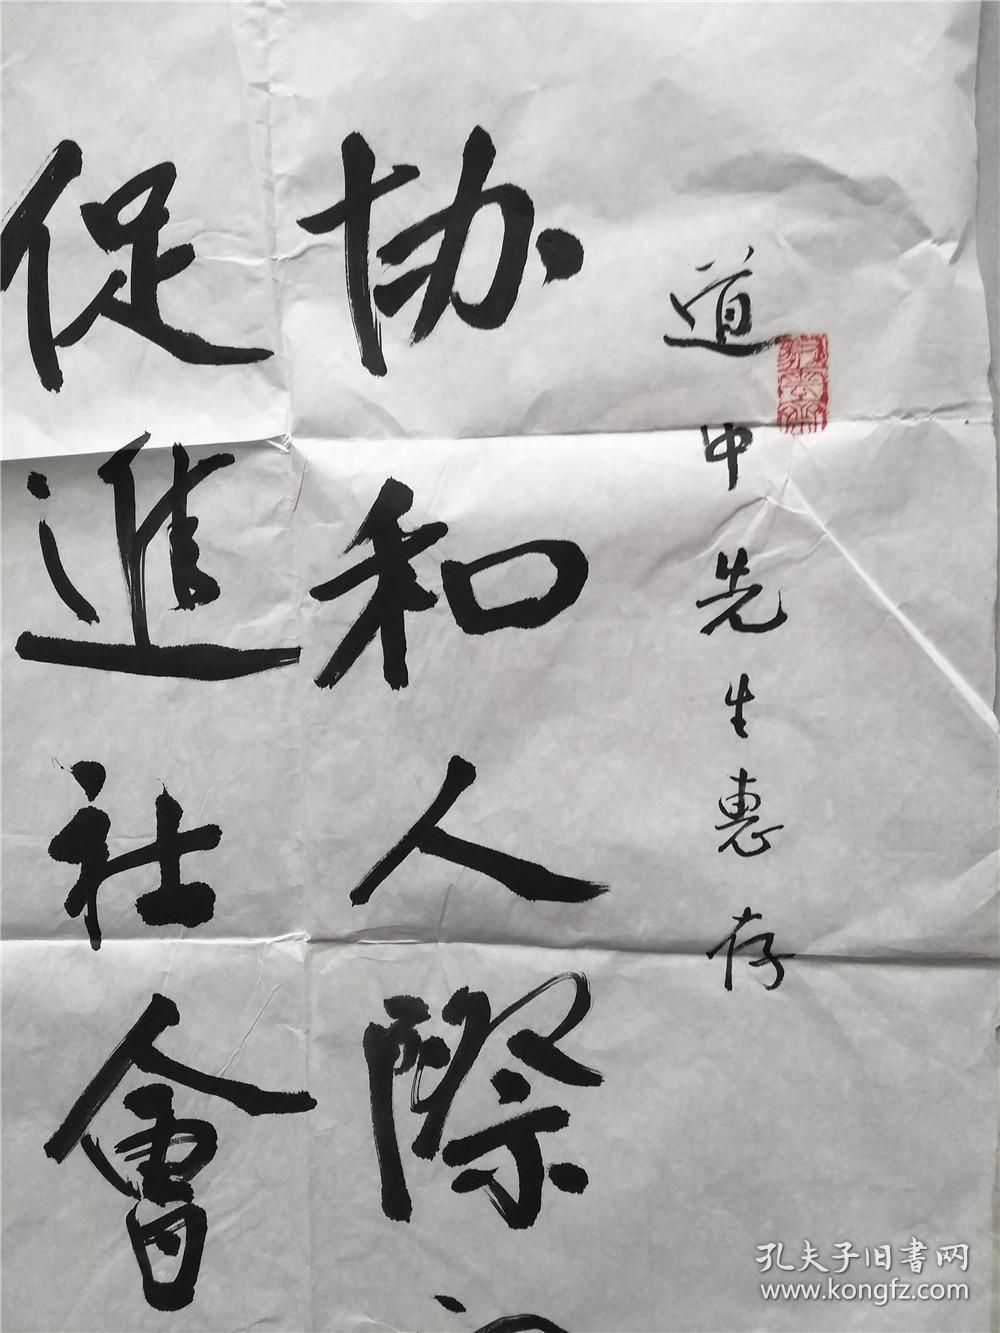 道中先生惠存
协和人際
促進社會
孔夫子旧書网
www.kongfz.com